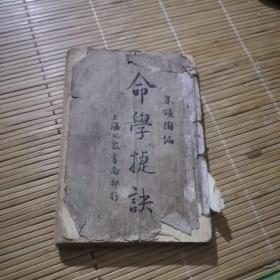 頌陶編
命學捷訣
上海書局印行